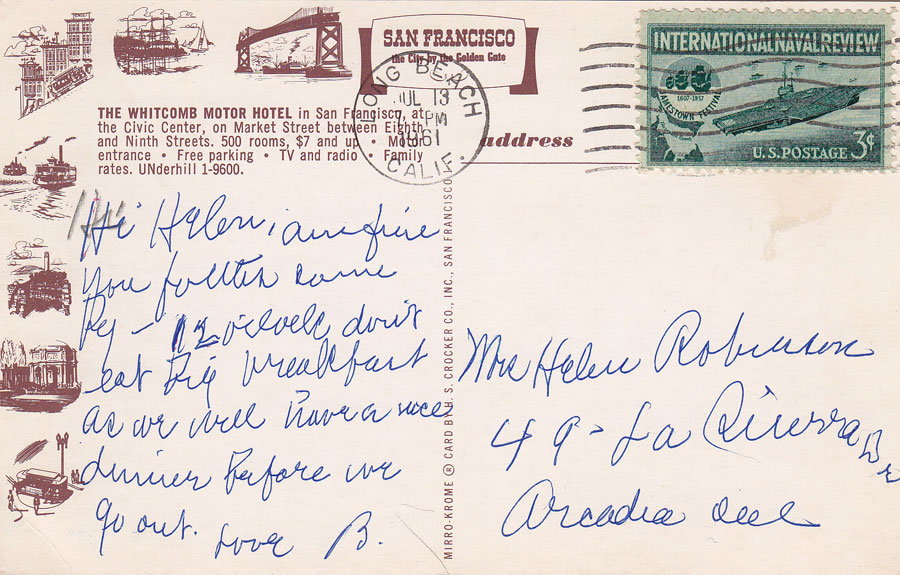 SAN FRANCISCO
the City by the Golden Gate
THE WHITCOMB MOTOR HOTEL in San Francisco, at
the Civic Center, on Market Street between Eighth
and Ninth Streets. 500 rooms, $7 and up • Motor
entrance • Free parking • TV and radio • Family
rates. UNderhill 1-9600.
LONG BEACH
JUL 13
PM
1961
CALIF.
address
INTERNATIONAL NAVAL REVIEW
JAMESTOWN FESTIVAL
1607-1957
U.S. POSTAGE 3¢
Hi Helen, are fine
you folks come
by - 12 o'clock don't
eat big breakfast
as we will have a nice
dinner before we
go out.
Love B.
MIRRO-KROME ® CARD BY H. S. CROCKER CO., INC., SAN FRANCISCO
Mrs Helen Robinson
49- La
Dr
Arcadia